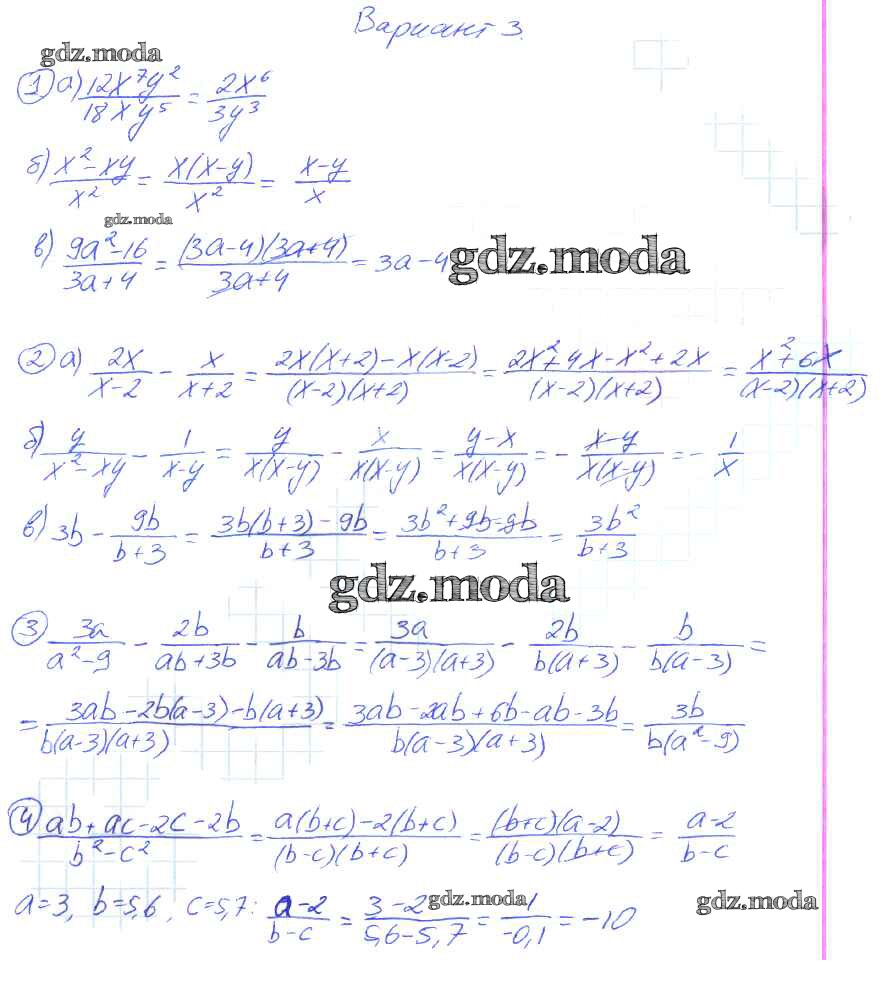 Вариант 3.
gdz.moda
1 а) 12x⁷y²/18xy⁵ = 2x⁶/3y³
б) x²-xy/x² = x(x-y)/x² = x-y/x
gdz.moda
в) 9a²-16/3a+4 = (3a-4)(3a+4)/3a+4 = 3a-4
gdz.moda
2 а) 2x/x-2 - x/x+2 = 2x(x+2)-x(x-2)/(x-2)(x+2) = 2x²+4x-x²+2x/(x-2)(x+2) = x²+6x/(x-2)(x+2)
б) y/x²-xy - 1/x-y = y/x(x-y) - x/x(x-y) = y-x/x(x-y) = - x-y/x(x-y) = - 1/x
в) 3b - 9b/b+3 = 3b(b+3)-9b/b+3 = 3b²+9b-9b/b+3 = 3b²/b+3
gdz.moda
3 3a/a²-9 - 2b/ab+3b - b/ab-3b = 3a/(a-3)(a+3) - 2b/b(a+3) - b/b(a-3) =
= 3ab-2b(a-3)-b(a+3)/b(a-3)(a+3) = 3ab-2ab+6b-ab-3b/b(a-3)(a+3) = 3b/b(a²-9)
4 ab+ac-2c-2b/b²-c² = a(b+c)-2(b+c)/(b-c)(b+c) = (b+c)(a-2)/(b-c)(b+c) = a-2/b-c
a=3, b=5,6, c=5,7: a-2/b-c = 3-2/5,6-5,7 = 1/-0,1 = -10
gdz.moda
gdz.moda